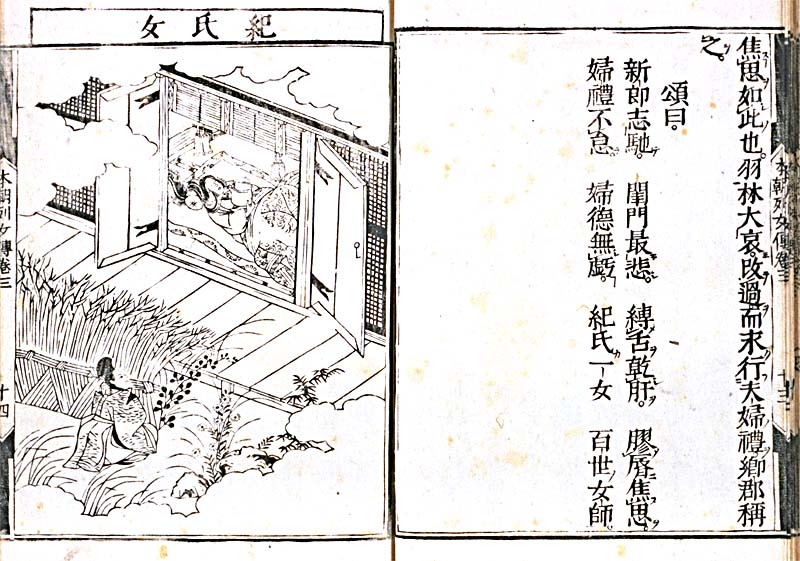 本朝列女傳卷三
十三
焦思如此也。羽林大哀。改過而求行夫婦禮鄉郡稱
之。
頌曰。
新郎志馳。 閨門最悲。 縛舌乾肝。 膠脣焦思。
婦禮不怠 婦德無虧。 紀氏一女 百世女師。
紀氏女
本朝列女傳卷三
十四